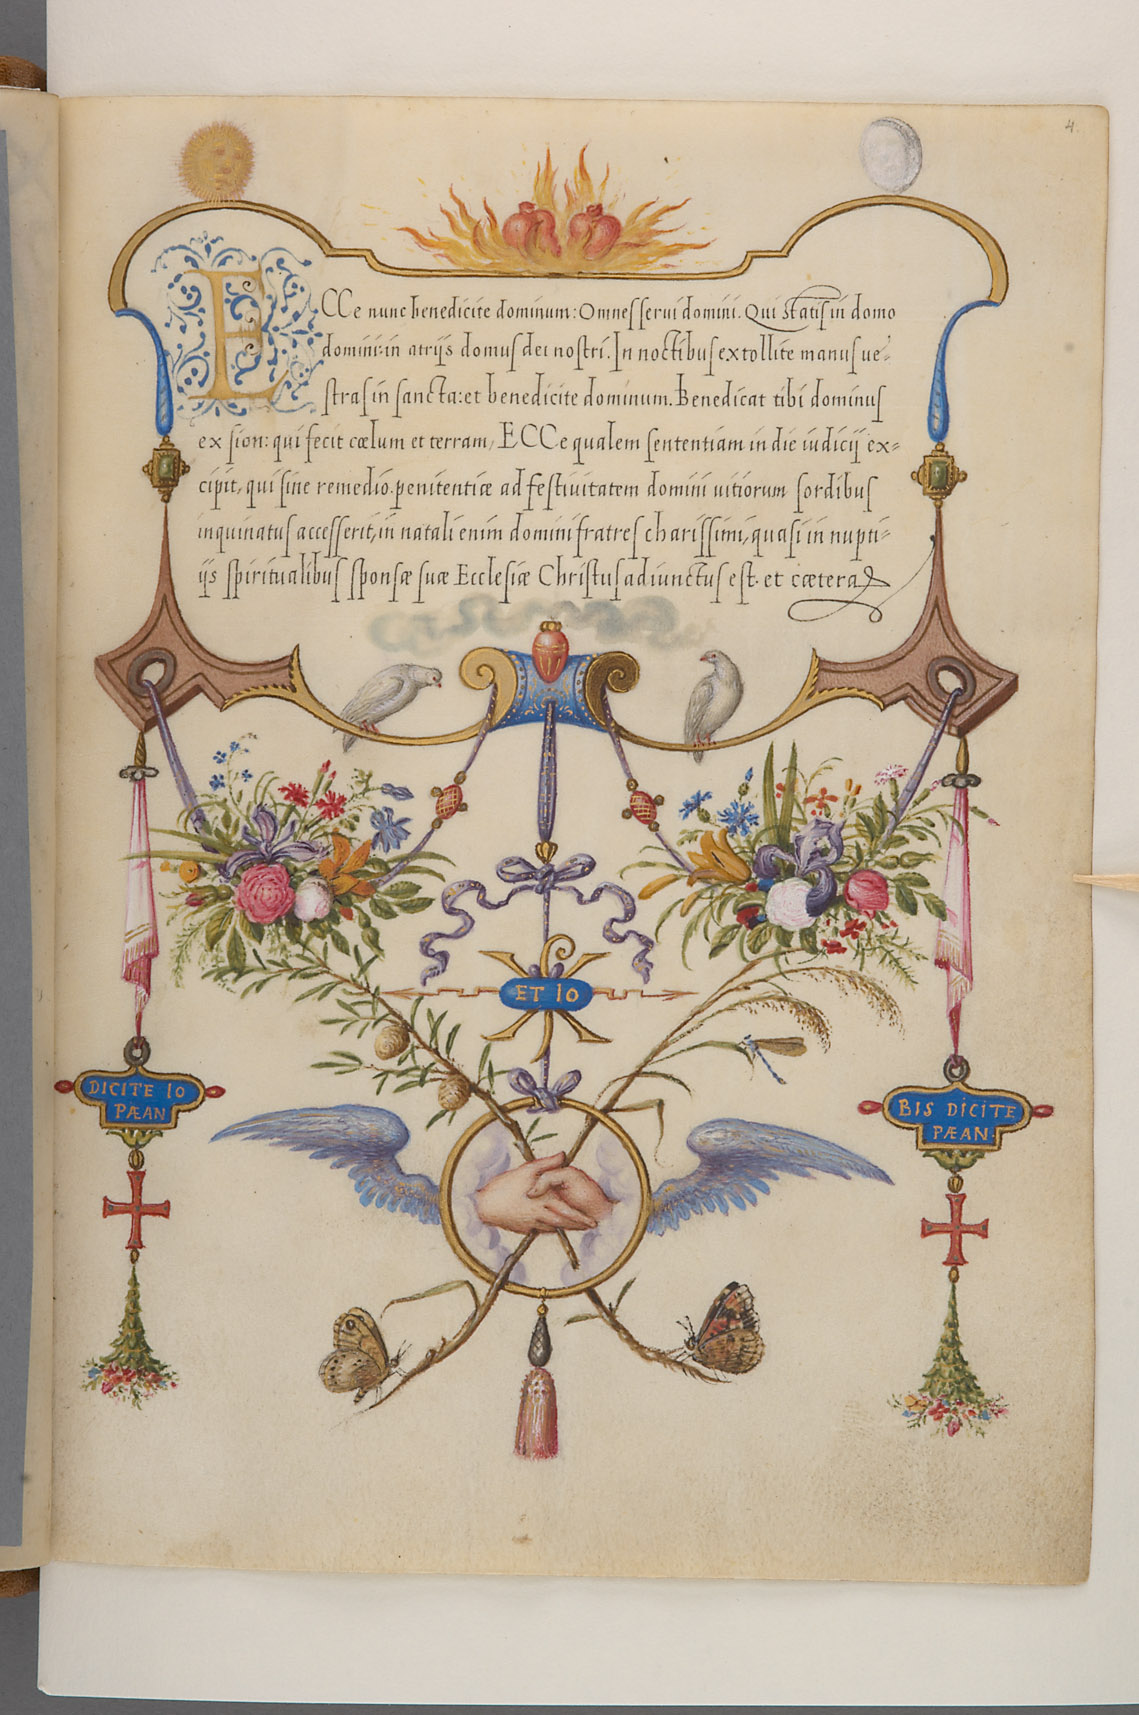 4.
ECCe nunc benedicite dominum: Omnes serui domini. Qui statis in domo
domini: in atrijs domus dei nostri. In noctibus extollite manus ue-
stras in sancta: et benedicite dominum. Benedicat tibi dominus
ex sion: qui fecit cœlum et terram, ECCe qualem sententiam in die iudicij ex-
cipit, qui sine remedio penitentiæ ad festiuitatem domini uitiorum sordibus
inquinatus accesserit, in natali enim domini fratres charissimi, quasi in nupti-
ijs spiritualibus sponsæ suæ Ecclesiæ Christus adiunctus est. et cætera
ET IO
DICITE IO
PÆAN
BIS DICITE
PÆAN.